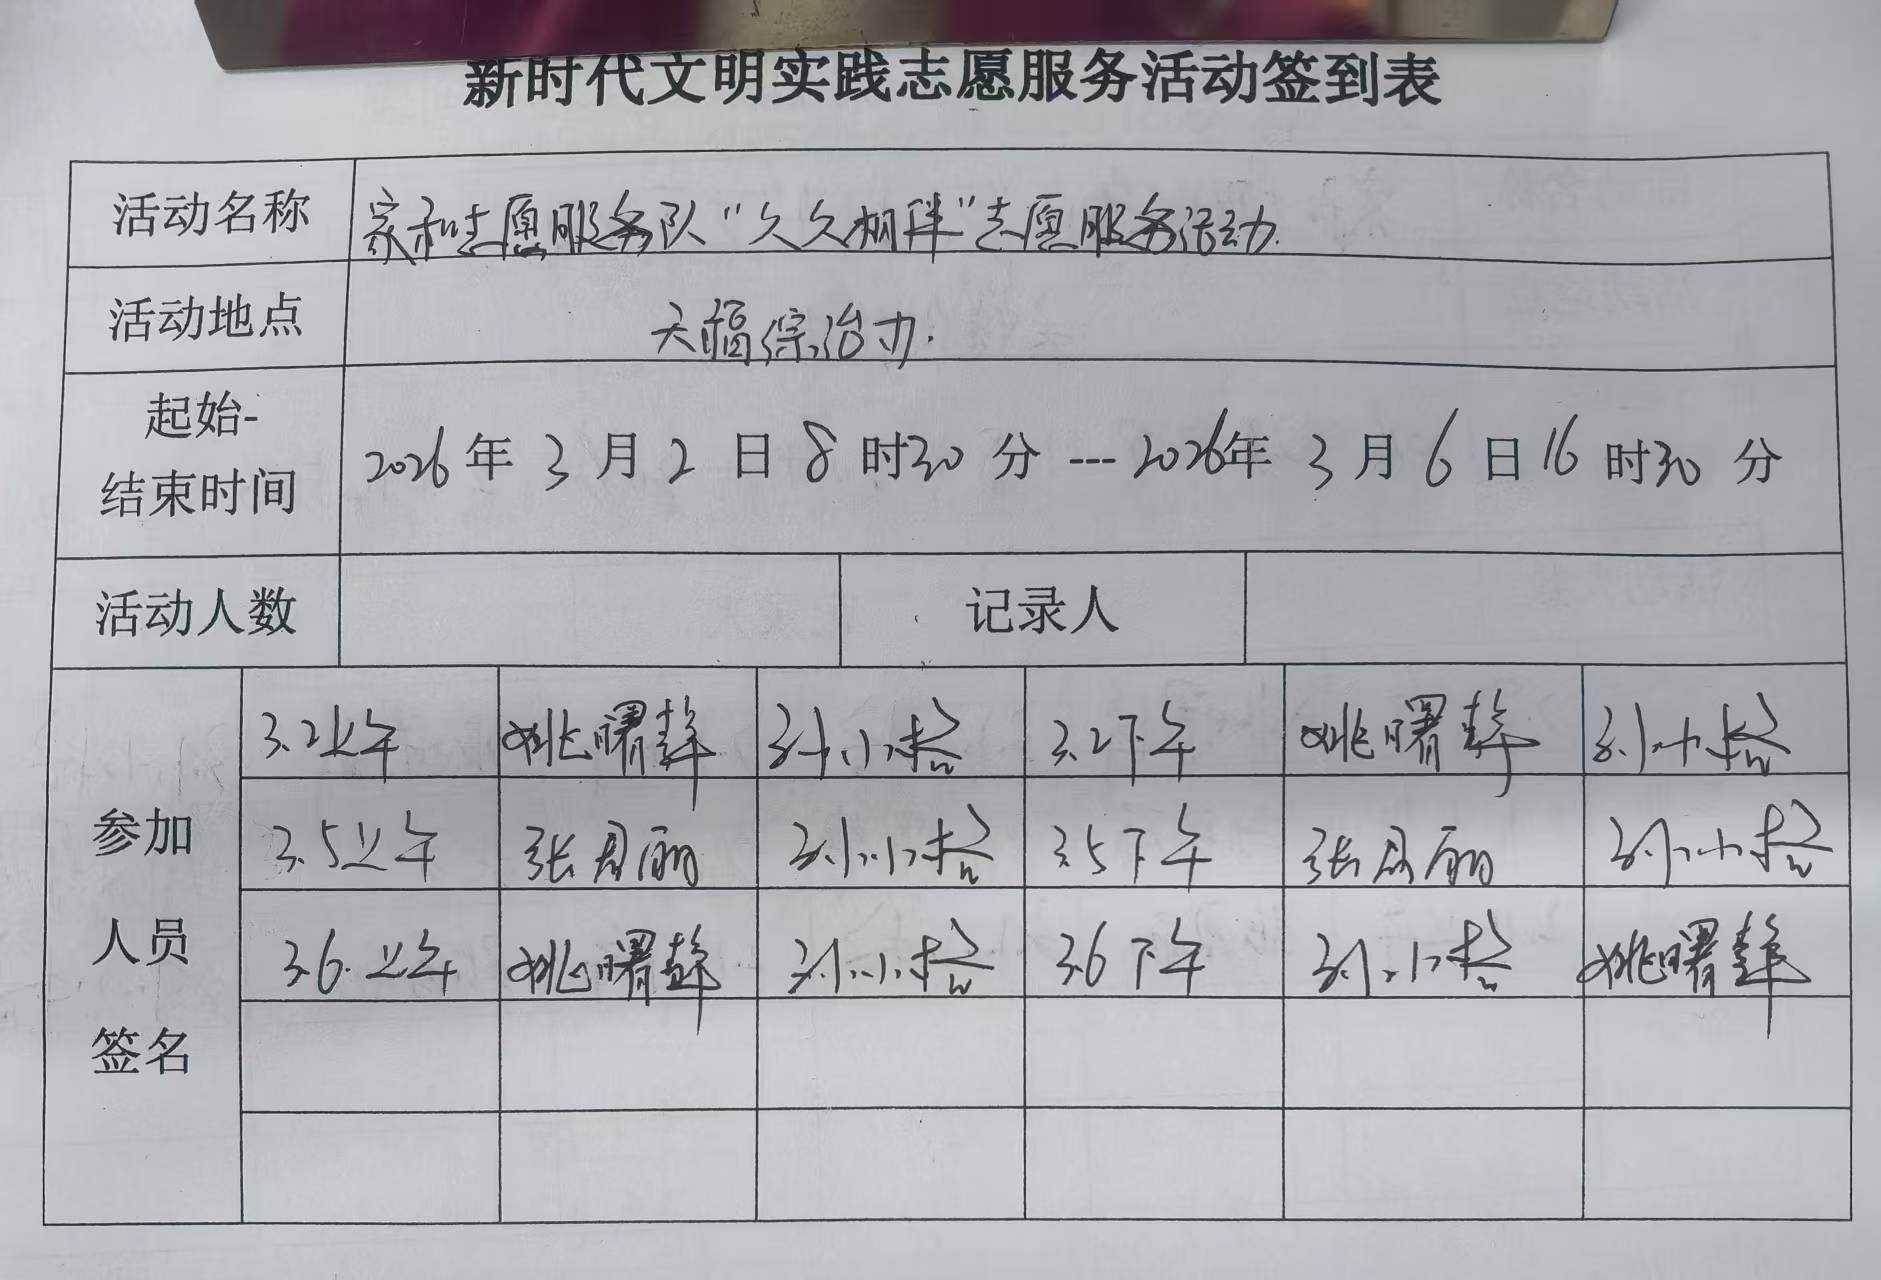 新时代文明实践志愿服务活动签到表
活动名称 家和志愿服务队“久久相伴”志愿服务活动.
活动地点 天福综治办.
起始-
结束时间 2026年 3月 2日 8时30分 --- 2026年 3月 6日 16时30分
活动人数 记录人
参加
人员
签名
3.2上午 姚曙 孙小 3.2下午 姚曙 孙小
3.5上午 张丽 孙小 3.5下午 张丽 孙小
3.6.上午 姚曙 孙小 3.6下午 孙小 姚曙